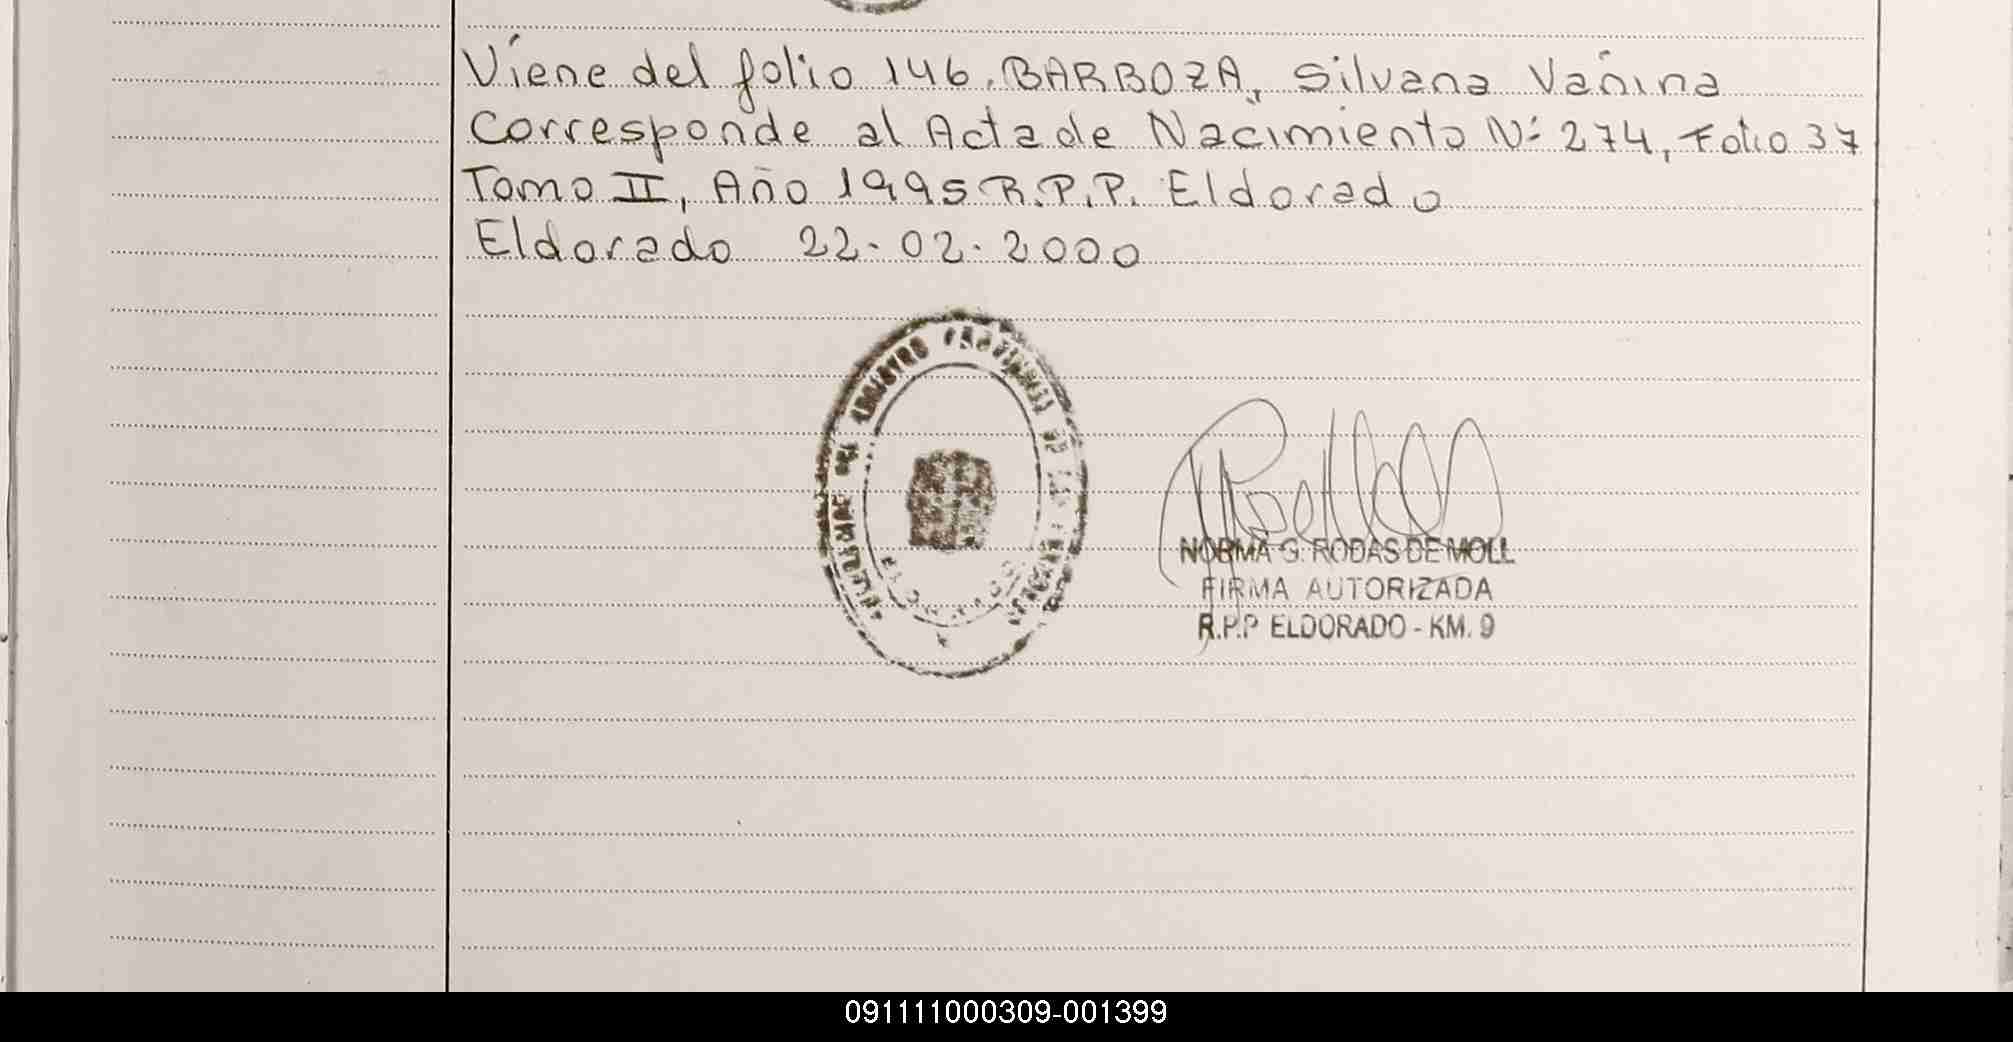 Viene del folio 146. BARBOZA, Silvana Vanina
Corresponde al Acta de Nacimiento Nº 274, Folio 37
Tomo II, Año 1995 R.P.P. Eldorado
Eldorado 22-02-2000
REGISTRO PROVINCIAL DE LAS PERSONAS
ELDORADO
NORMA G. RODAS DE MOLL
FIRMA AUTORIZADA
R.P.P ELDORADO - KM. 9
091111000309-001399